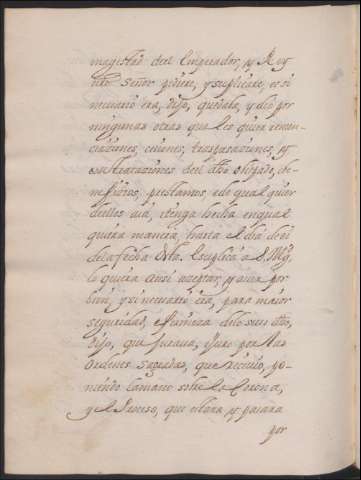 magestad del Emperador, y Rey
nro Señor quiere, y suplicare, e si
necesario era, dijo, quedaba, y dio por
ningunas otras qualesquiera renun-
ciaciones, cesiones, traspasaciones, y
contrataciones del dho obispado, be-
neficios, prestamos, e de qualquier
dellos aia, e tenga hecha en qual
quiera manera, hasta el dia de oi
de la fecha desta. E suplicó a S. Mg.
lo quiera ansi aceptar, y aiga por
bien, y si necesario era, para maior
seguridad, e firmeza dello suso dho,
Dijo, que juraua, e juro por las
Ordenes Sagradas, que recivió, po-
niendo la mano sobre la Corona,
y el Proceso, que estara y pasara
por